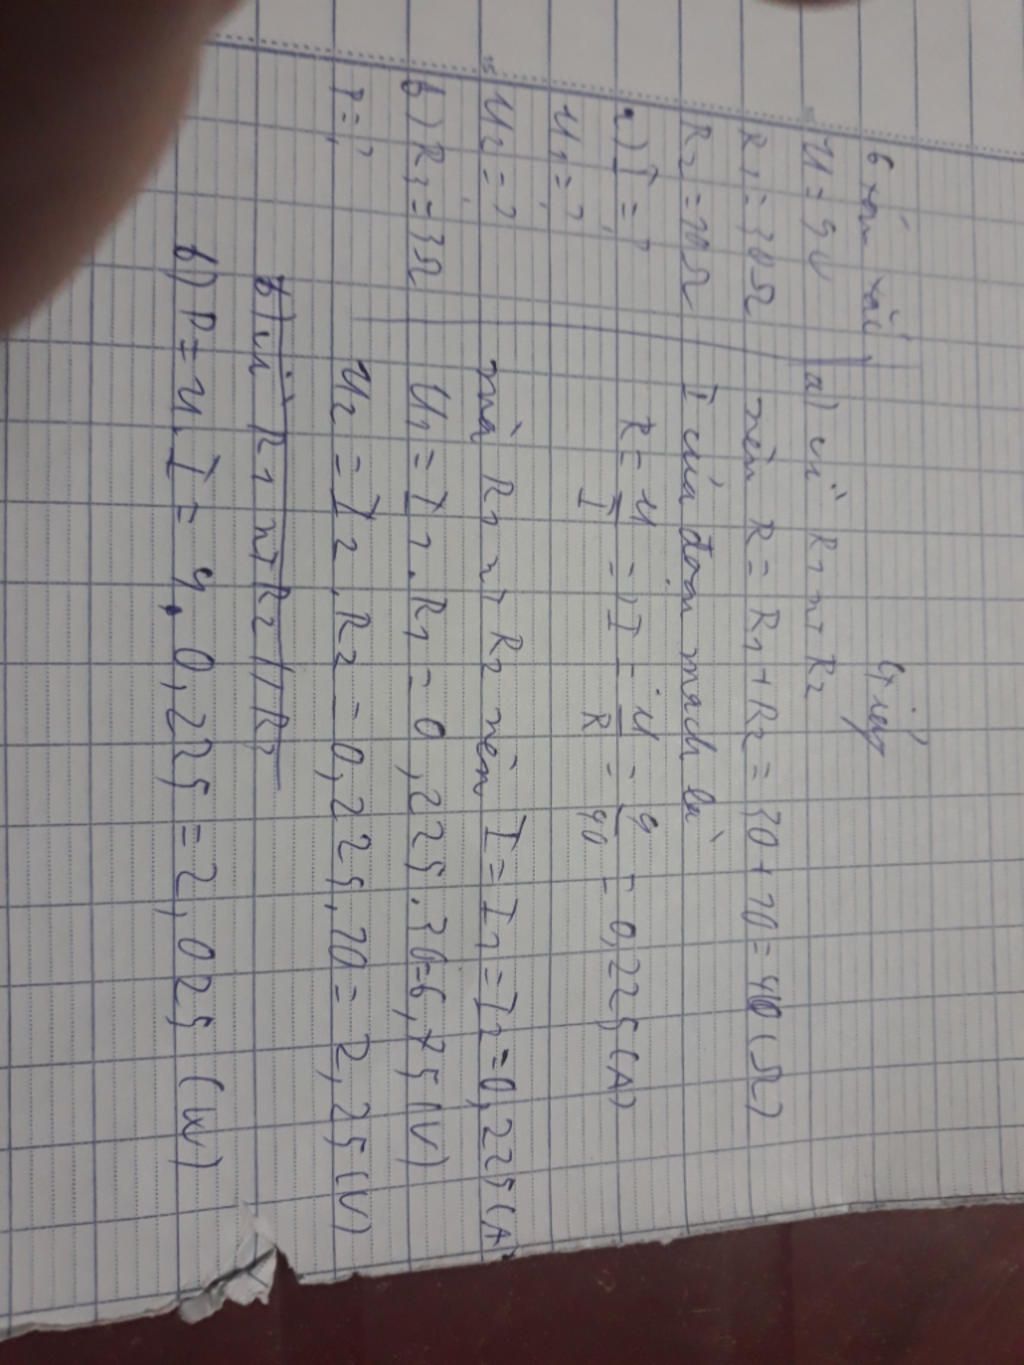 Giải
U = 9V
R1 = 30Ω
R2 = 10Ω
a) I = ?
U1 = ?
U2 = ?
b) R3 = 3Ω
P = ?
a) vì R1 nt R2
nên R = R1 + R2 = 30 + 10 = 40 (Ω)
I của đoạn mạch là
R = U/I => I = U/R = 9/40 = 0,225 (A)
mà R1 nt R2 nên I = I1 = I2 = 0,225 (A)
U1 = I1 . R1 = 0,225 . 30 = 6,75 (V)
U2 = I2 . R2 = 0,225 . 10 = 2,25 (V)
b) vì R1 nt R2 // R3
b) P = U . I = 9 . 0,225 = 2,025 (W)